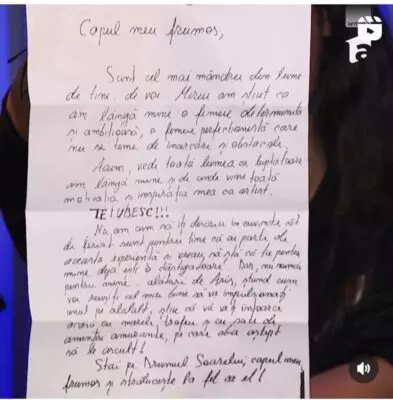 Capul meu frumos,
Sunt cel mai mândru din lume
de tine, de voi. Mereu am știut că
am lângă mine o femeie determinată
și ambițioasă, o femeie perfecționistă care
nu se teme de încercări și obstacole.
Acum, vede toată lumea ce luptătoare
am lângă mine și de unde vine toată
motivația și inspirația mea ca artist.
TE IUBESC!!!
N-am cum să îți descriu în cuvinte cât
de fericit sunt pentru tine că ai parte de
această experiență și vreau să știi că tu pentru
mine deja ești o câștigătoare. Dar, nu numai
pentru mine. alături de știind cum
voi reușiți cel mai bine să vă impulsionați
unul pe celălalt, știu că vă veți întoarce
acasă cu marele trofeu și cu sute de
amintiri amuzante, pe care abia aștept
să le ascult!
Stai pe Drumul Soarelui, capul meu
frumos și strălucește la fel ca el!